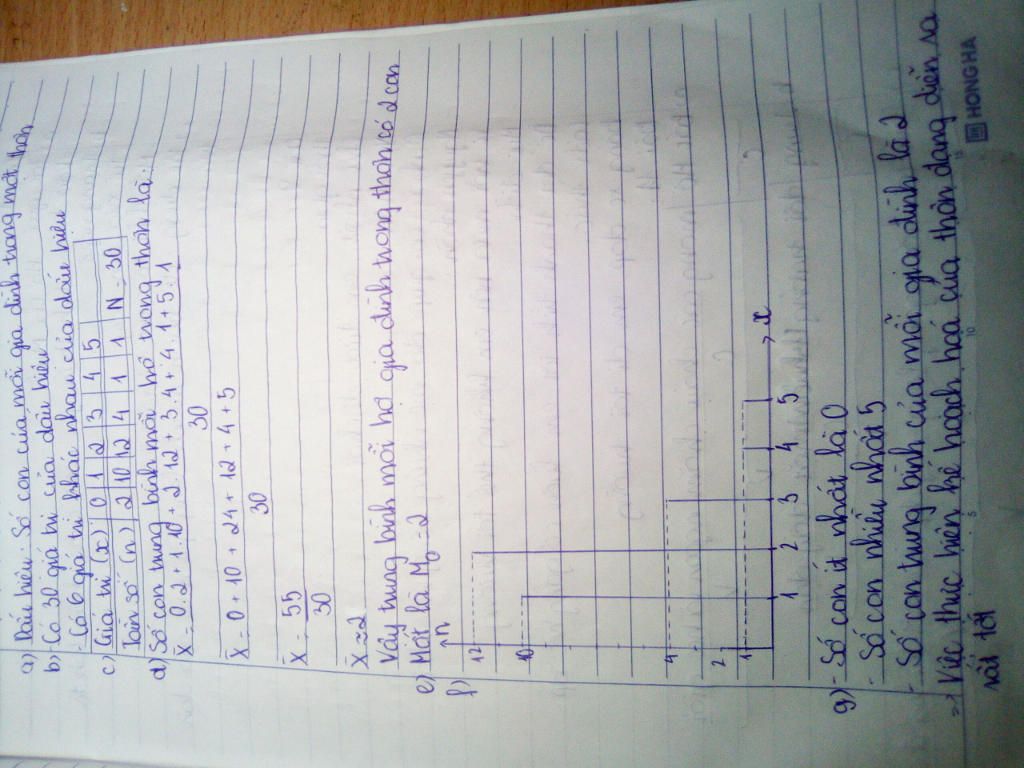 a) Dấu hiệu: Số con của mỗi gia đình trong một thôn
b) - Có 30 giá trị của dấu hiệu
- Có 6 giá trị khác nhau của dấu hiệu
c) Giá trị (x) 0 1 2 3 4 5
Tần số (n) 2 10 12 4 1 1 N = 30
d) Số con trung bình mỗi hộ trong thôn là:
X̄ = 0.2 + 1.10 + 2.12 + 3.4 + 4.1 + 5.1
30
X̄ = 0 + 10 + 24 + 12 + 4 + 5
30
X̄ = 55
30
X̄ ≈ 2
Vậy trung bình mỗi hộ gia đình trong thôn có 2 con
e) Mốt là M₀ = 2
f) n
12
10
4
2
1
1 2 3 4 5 x
g) - Số con ít nhất là 0
- Số con nhiều nhất 5
- Số con trung bình của mỗi gia đình là 2
=> Việc thực hiện kế hoạch hoá của thôn đang diễn ra
rất tốt
HONG HA